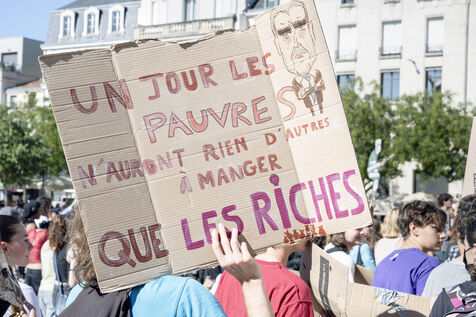 UN JOUR LES
PAUVRES
N'AURONT RIEN D'AUTRES
À MANGER
QUE LES RICHES